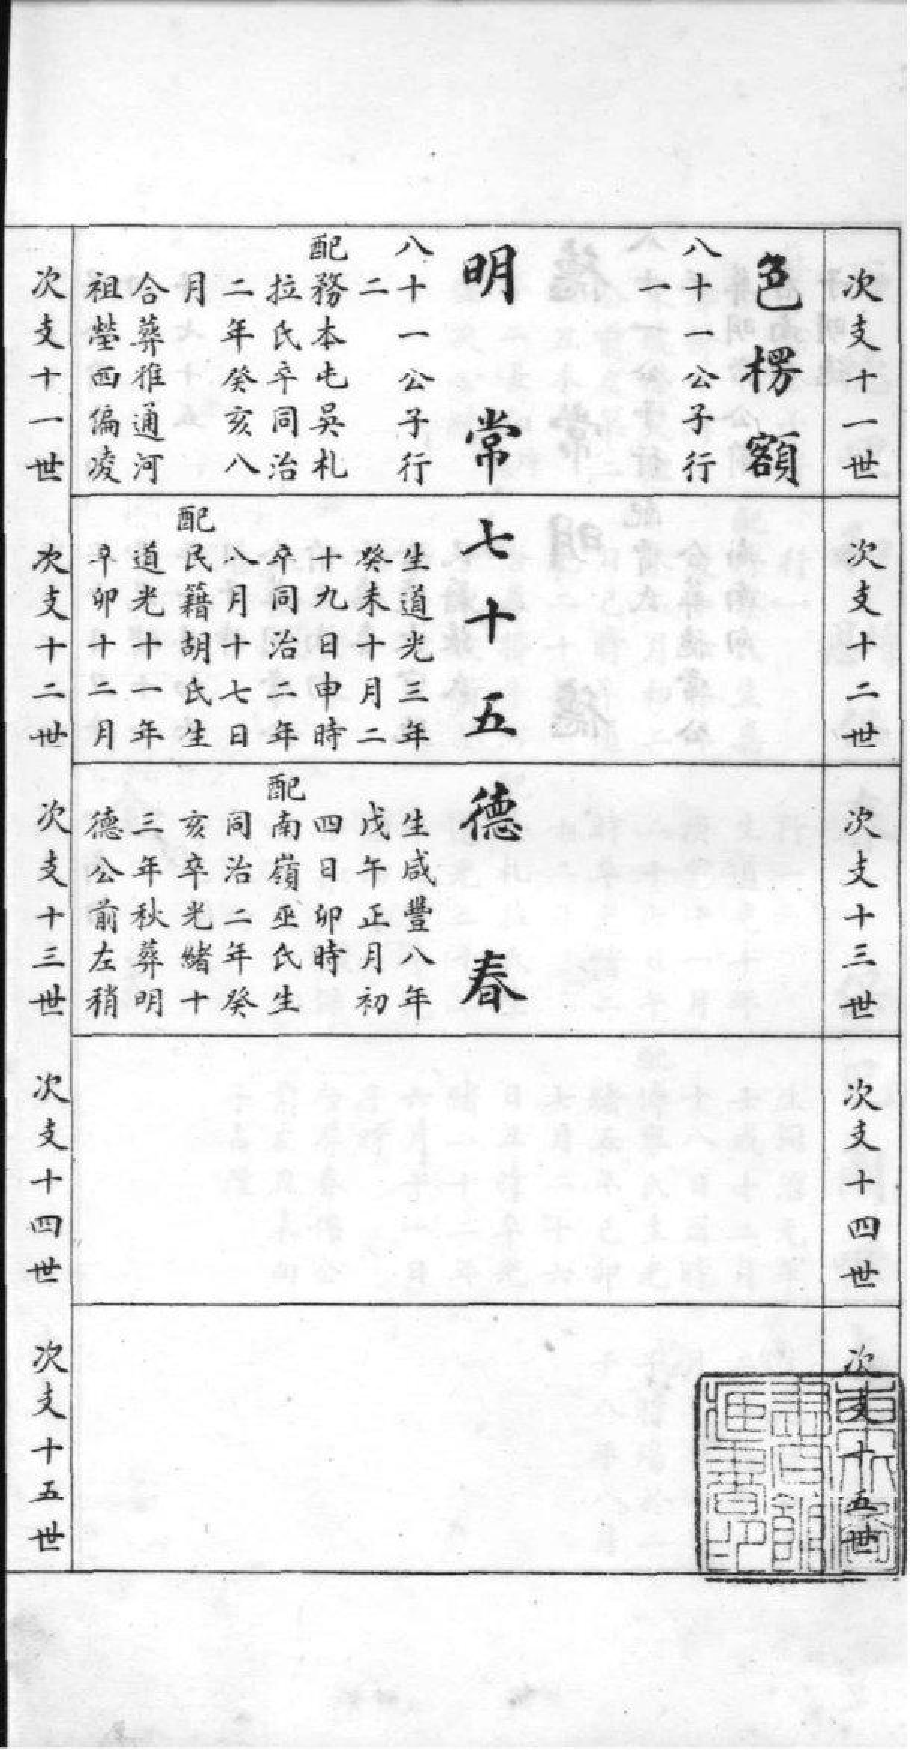 次支十一世
色楞額
八十一公子行
一
明常
八十一公子行
二
配務本屯吳札
拉氏卒同治
二年癸亥八
月
合葬推通河
祖塋西偏凌
次支十一世
次支十二世
七十五
生道光三年
癸未十月二
十九日申時
卒同治二年
八月十七日
配民籍胡氏生
道光十一年
辛卯十二月
次支十二世
次支十三世
德春
生咸豐八年
戊午正月初
四日卯時
配南嶺巫氏生
同治二年癸
亥卒光緒十
三年秋葬明
德公前左稍
次支十三世
次支十四世
次支十四世
次支十五世
次支十五世